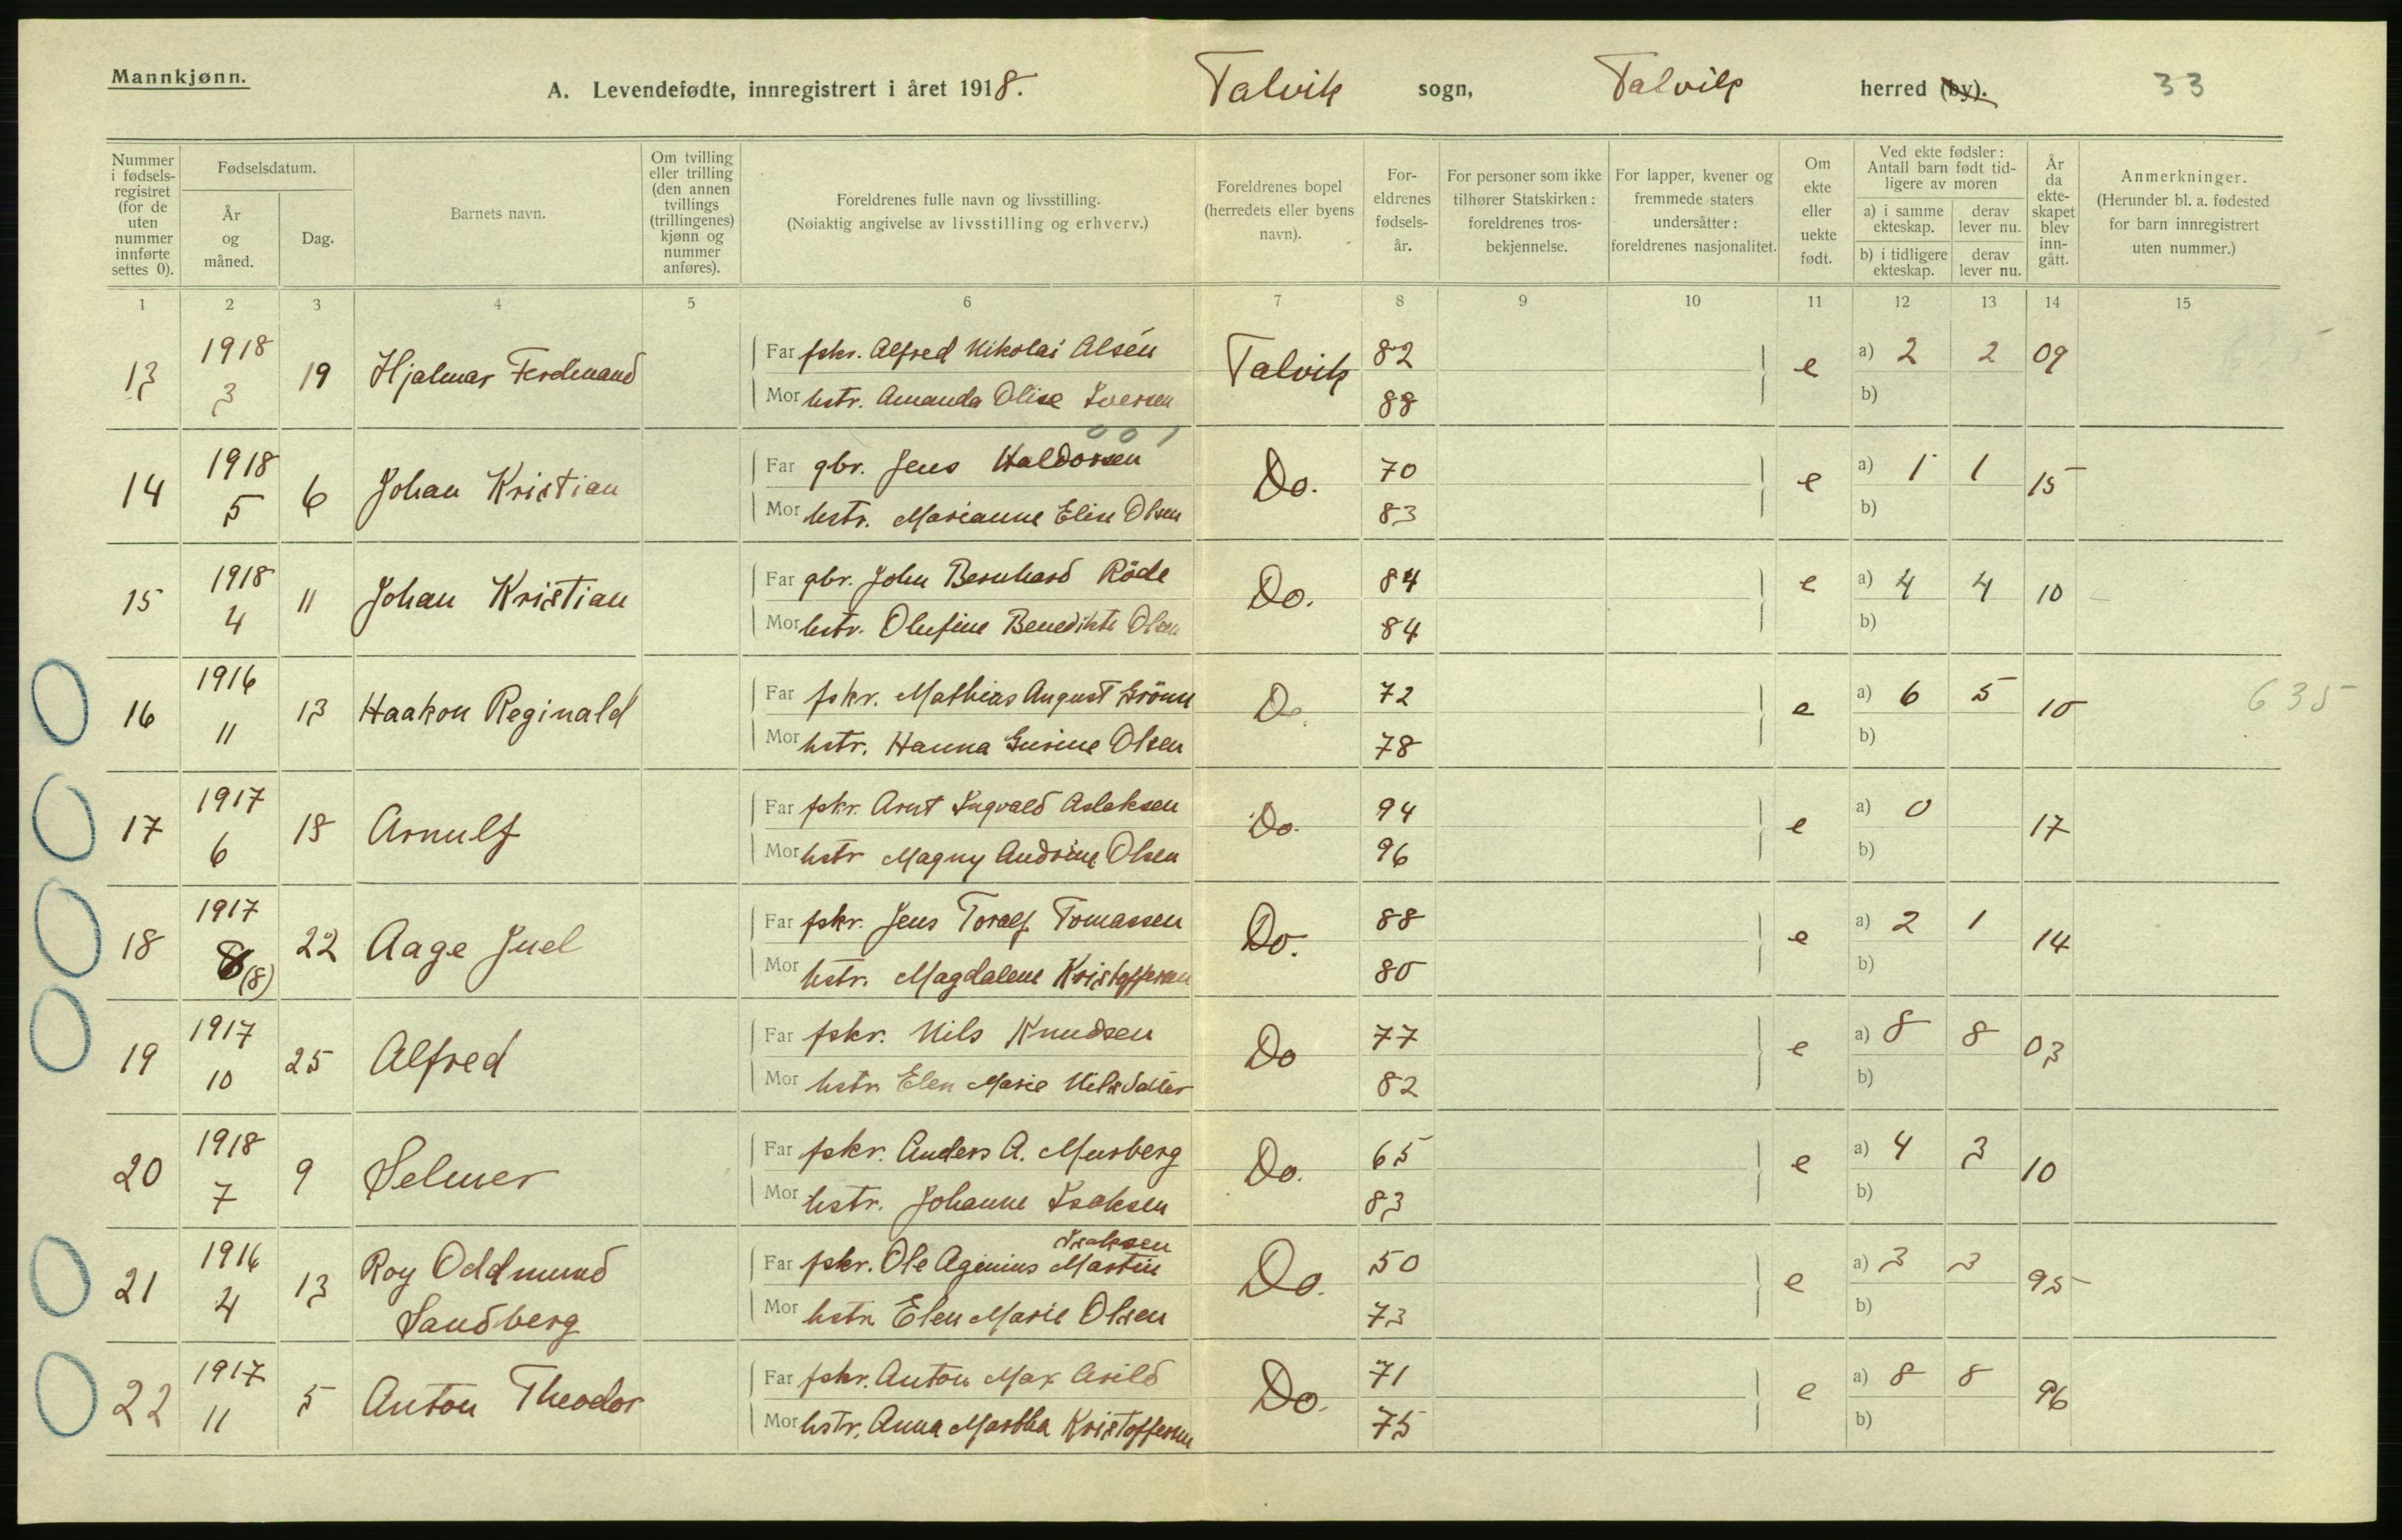 Mannkjønn.
A. Levendefødte, innregistrert i året 1918. Talvik sogn, Talvik herred (by). 33
Nummer i fødsels-registret (for de uten nummer innførte settes 0).
Fødselsdatum.
År og måned.
Dag.
Barnets navn.
Om tvilling eller trilling (den annen tvillings (trillingenes) kjønn og nummer anføres).
Foreldrenes fulle navn og livsstilling.
(Nøiaktig angivelse av livsstilling og erhverv.)
Foreldrenes bopel (herredets eller byens navn).
For-eldrenes fødsels-år.
For personer som ikke tilhører Statskirken: foreldrenes tros-bekjennelse.
For lapper, kvener og fremmede staters undersåtter: foreldrenes nasjonalitet.
Om ekte eller uekte født.
Ved ekte fødsler: Antall barn født tid-ligere av moren
a) i samme ekteskap. derav lever nu.
b) i tidligere ekteskap. derav lever nu.
År da ekte-skapet blev inn-gått.
Anmerkninger.
(Herunder bl. a. fødested for barn innregistrert uten nummer.)
1 2 3 4 5 6 7 8 9 10 11 12 13 14 15
13 1918 3 19 Hjalmar Ferdinand Far fskr. Alfred Nikolai Alsén Talvik 82 e a) 2 2 09
Mor hstr. Amanda Olise Iversen 88 b)
14 1918 5 6 Johan Kristian Far gbr. Jens Haldorsen Do. 70 e a) 1 1 15
Mor hstr. Marianne Elise Olsen 83 b)
15 1918 4 11 Johan Kristian Far gbr. John Bernhard Röde Do. 84 e a) 4 4 10
Mor hstr. Olufine Benedikte Olsen 84 b)
16 1916 11 13 Haakon Reginald Far fskr. Mathias August Grönn Do. 72 e a) 6 5 10 635
Mor hstr. Hanna Gurine Olsen 78 b)
17 1917 6 18 Arnulf Far fskr. Arnt Ingvald Aslaksen Do. 94 e a) 0 17
Mor hstr Magny Andrine Olsen 96 b)
18 1917 8 (8) 22 Aage Juel Far fskr. Jens Toralf Tomassen Do. 88 e a) 2 1 14
Mor hstr. Magdalene Kristoffersen 80 b)
19 1917 10 25 Alfred Far fskr. Nils Knudsen Do 77 e a) 8 8 03
Mor hstr. Elen Marie Nilsdatter 82 b)
20 1918 7 9 Selmer Far fskr. Anders A. Murberg Do. 65 e a) 4 3 10
Mor hstr. Johanne Isaksen 83 b)
Isaksen
21 1916 4 13 Roy Oddmund Far fskr. Ole Agenius Martin Do. 50 e a) 3 3 95
Sandberg Mor hstr Elen Marie Olsen 73 b)
22 1917 11 5 Anton Theodor Far fskr. Anton Max Arild Do. 71 e a) 8 8 96
Mor hstr. Anna Martha Kristoffersen 75 b)